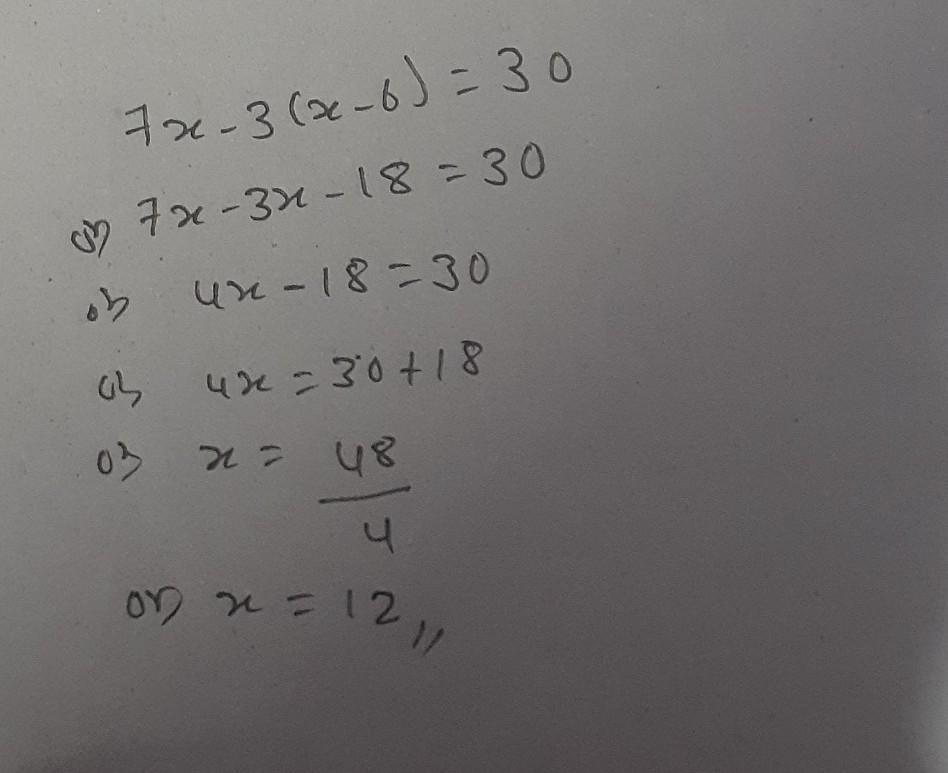 7x-3(x-6)=30
or 7x-3x-18=30
or 4x-18=30
or 4x=30+18
or x=48/4
or x=12,,